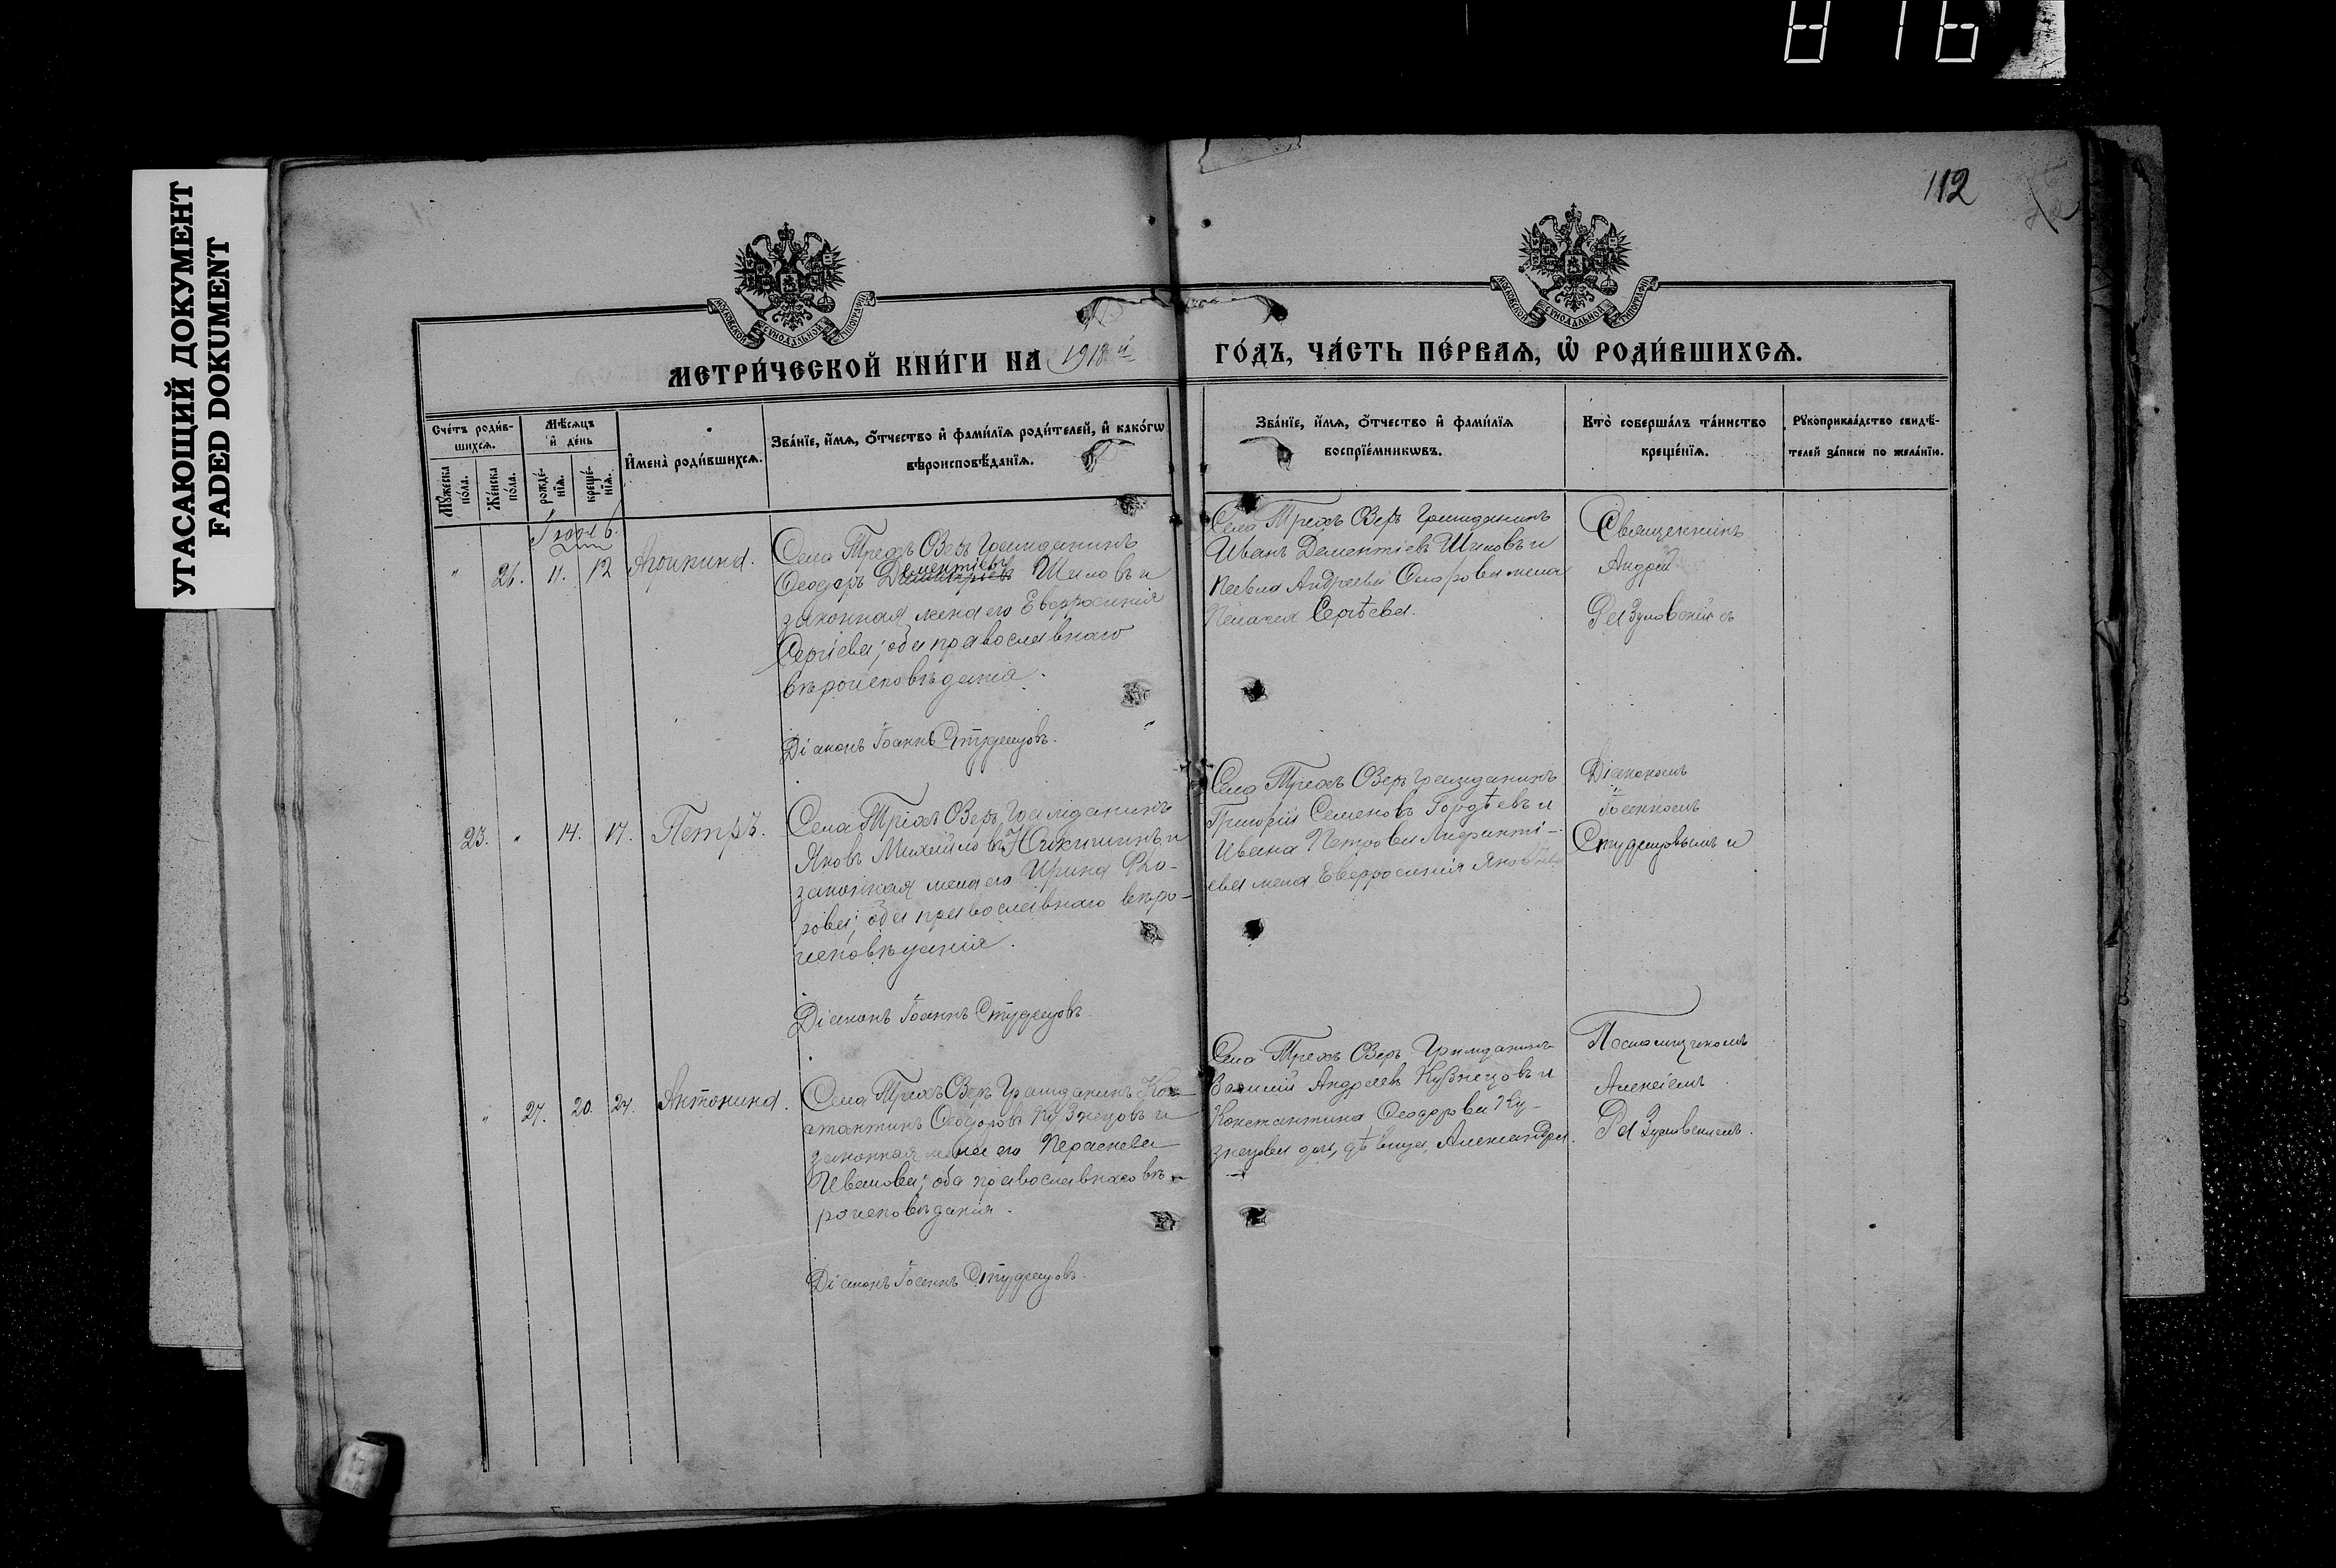 816
УГАСАЮЩИЙ ДОКУМЕНТ
FADED DOKUMENT
112
МОСКОВСКОЙ СѴНОДАЛЬНОЙ ТИПОГРАФІИ
МОСКОВСКОЙ СѴНОДАЛЬНОЙ ТИПОГРАФІИ
МЕТРИ́ЧЕСКОЙ КНИ́ГИ НА 1918й ГО́ДЪ, ЧА́СТЬ ПЕ́РВАѦ, Ѡ҆ РОДИ́ВШИХСѦ.
Сче́тъ роди́в-
шихсѧ.
Мꙋ́жеска
по́ла.
Же́нска
по́ла.
Мѣ́сѧцъ
и҆ де́нь
рожде́-
нїѧ.
креще́-
нїѧ.
И҆мена̀ роди́вшихсѧ.
Зва́нїе, и҆́мѧ, ѻ҆́тчество и҆ фами́лїѧ роди́телей, и҆ како́гѡ
вѣроисповѣ́данїѧ.
Зва́нїе, и҆́мѧ, ѻ҆́тчество и҆ фами́лїѧ
воспрїе́мникѡвъ.
Кто̀ соверша́лъ та́инство
креще́нїѧ.
Рꙋкоприкла́дство свидѣ́-
телей за́писи по жела́нїю.
" 26. 11. 12
Села Трехъ Озеръ Гражданинъ
Ѳеодоръ Дементіевъ Шиловъ и
законная жена его Евфросинія
Сергіева; оба православнаго
вѣроисповѣданія.
Діаконъ Іоаннъ Студенцовъ.
Села Трехъ Озеръ Гражданинъ
Иванъ Дементіевъ Шиловъ и
Павла Андреева жена
Пелагея Сергѣева.
Священникъ
Андрей
23. " 14. 17. Петръ.
Села Трехъ Озеръ, Гражданинъ
Яковъ Михайловъ Никишинъ и
законная жена его Ирина Его-
рова; оба православнаго вѣро-
исповѣданія.
Діаконъ Іоаннъ Студенцовъ
Села Трехъ Озеръ Гражданинъ
Григорій Семеновъ Гордѣевъ и
Ивана Петрова
ева жена Евфросинія
Діакономъ
Іоанномъ
Студенцовымъ и
" 27. 20. 24. Антонина.
Села Трехъ Озеръ Гражданинъ Кон-
стантинъ Ѳеодоровъ Кузнецовъ и
законная жена его Параскева
Иванова; оба православнаго вѣ-
роисповѣданія.
Діаконъ Іоаннъ Студенцовъ.
Села Трехъ Озеръ Гражданинъ
Василій Андреевъ Кузнецовъ и
Константина Ѳеодорова Ку-
знецова дочь, дѣвица, Александра.
Псаломщикомъ
Алексіемъ